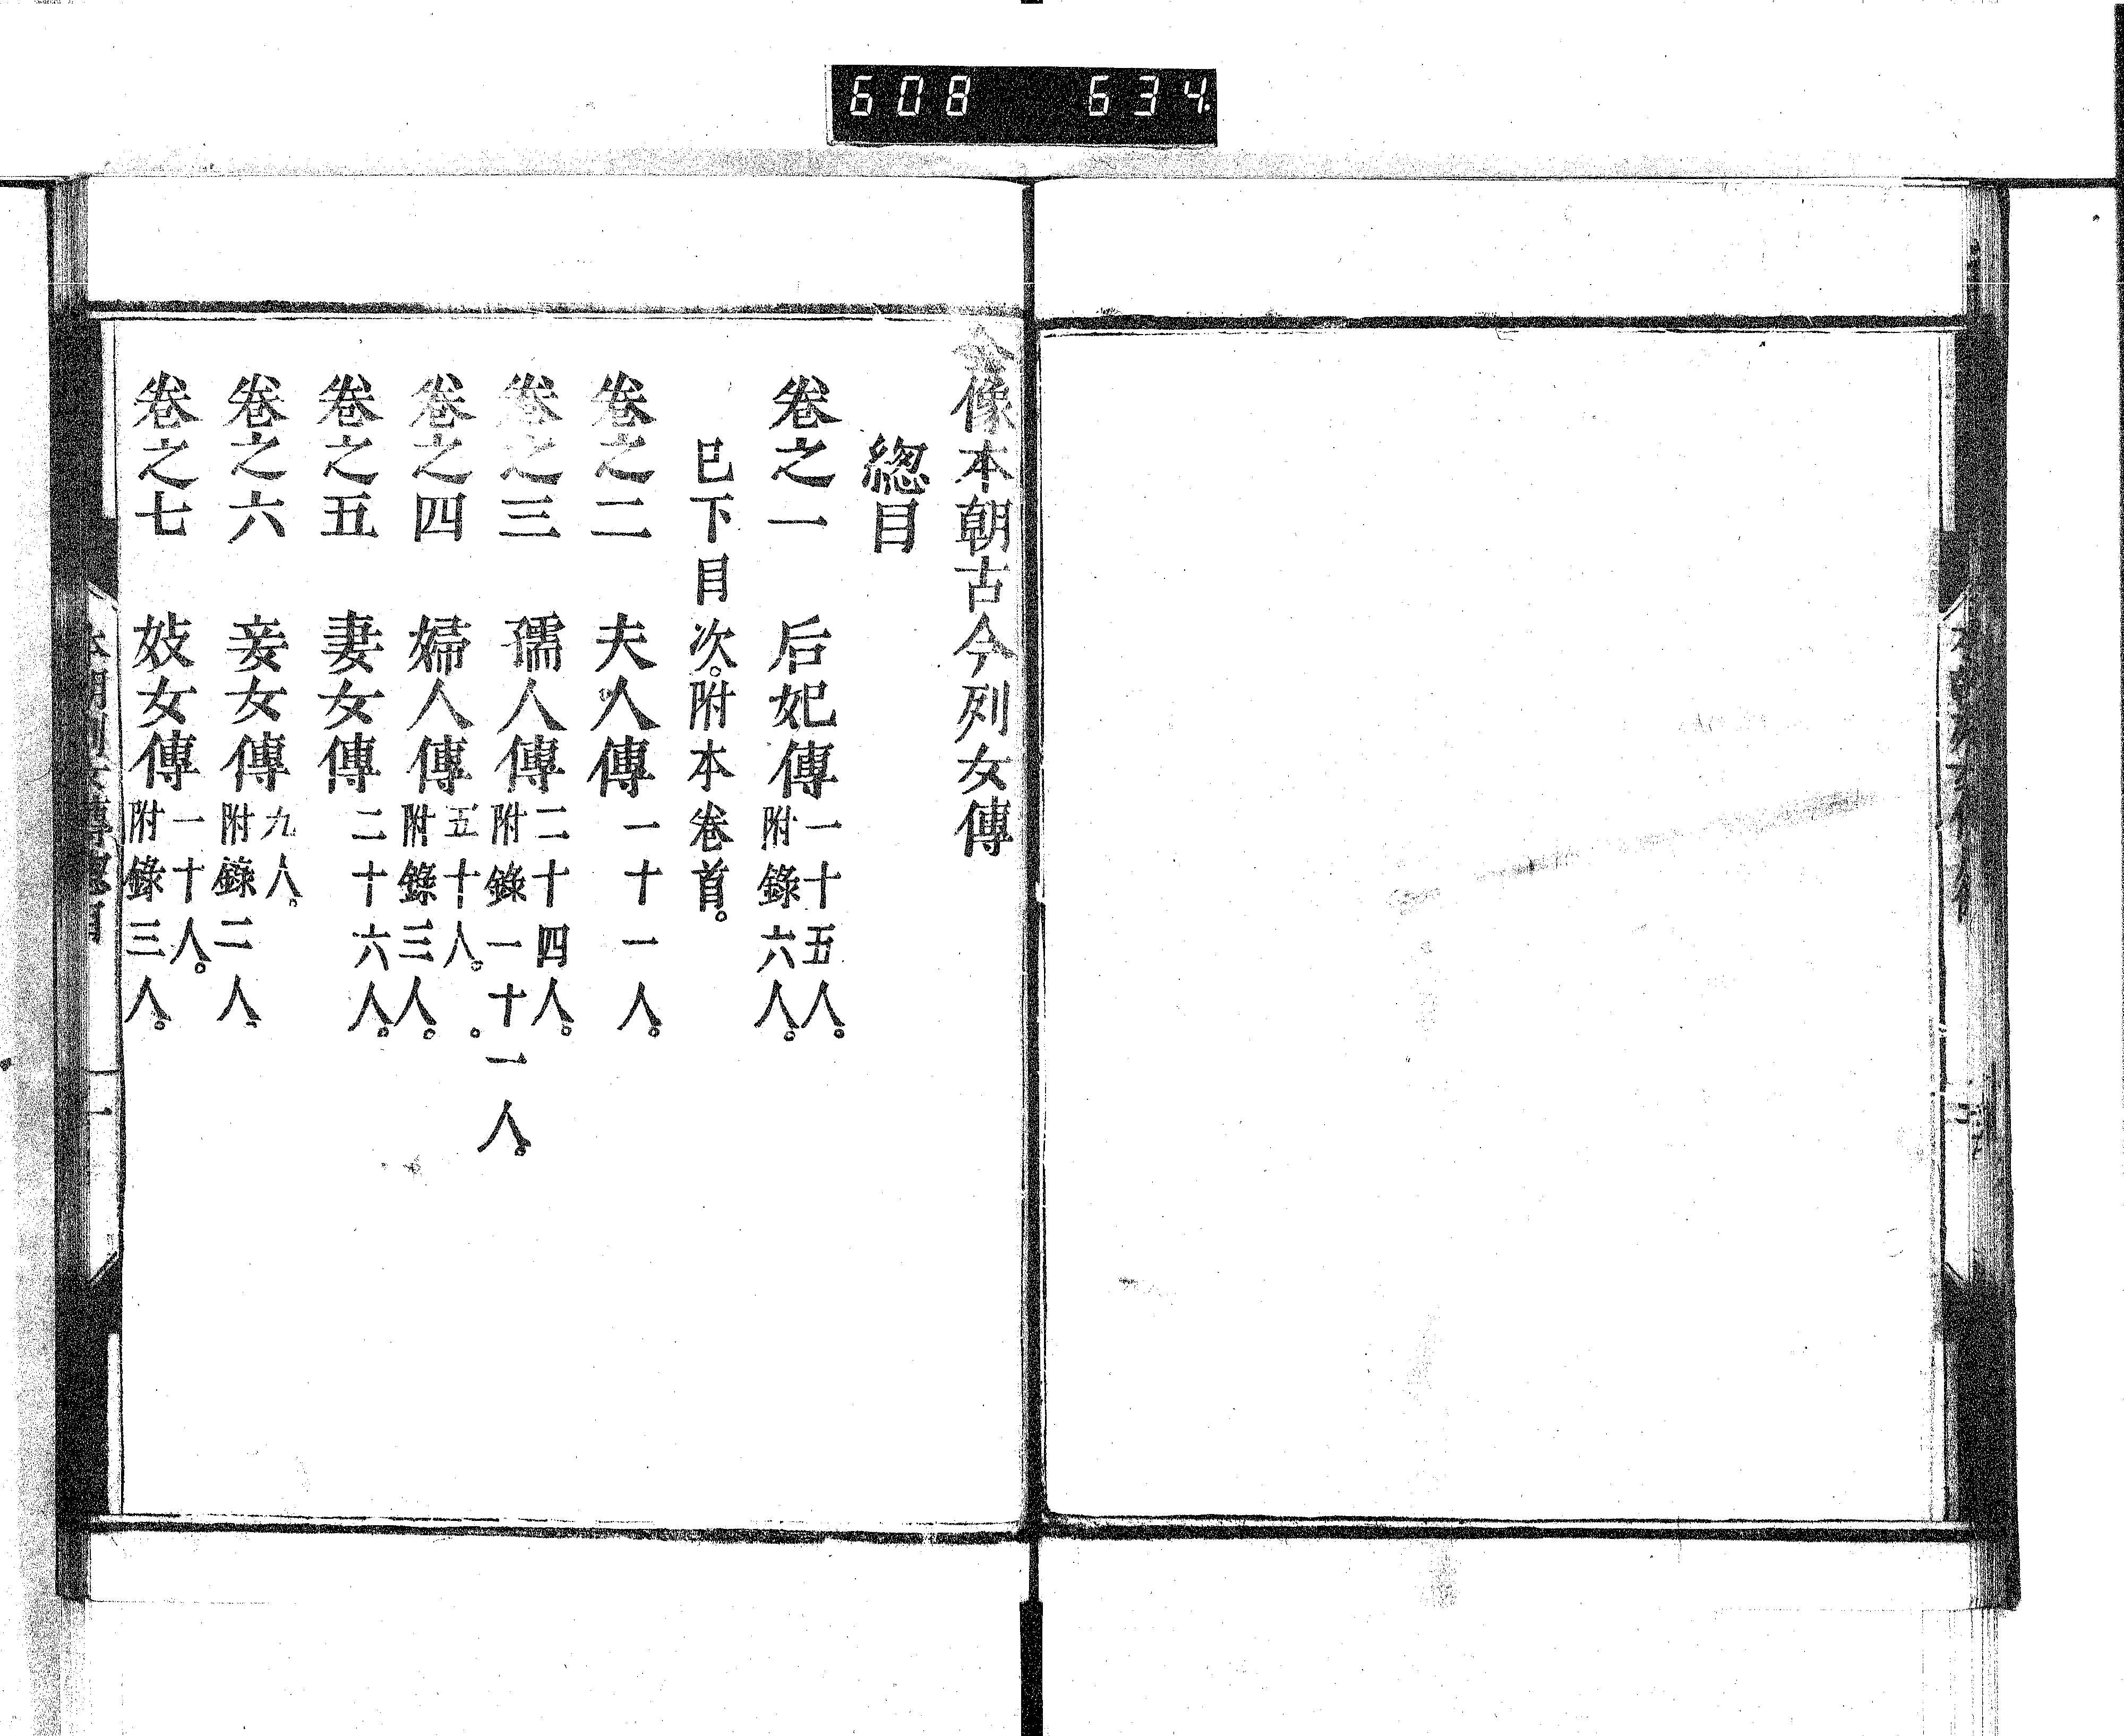 608 634
全像本朝古今列女傳
總目
卷之一 后妃傳 一十五人。附錄六人。
已下目次。附本卷首。
卷之二 夫人傳 一十一人。
卷之三 孺人傳 二十四人。附錄一十一人。
卷之四 婦人傳 五十人。附錄三人。
卷之五 妻女傳 二十六人。
卷之六 妾女傳 九人。附錄二人
卷之七 妓女傳 一十人。附錄三人。